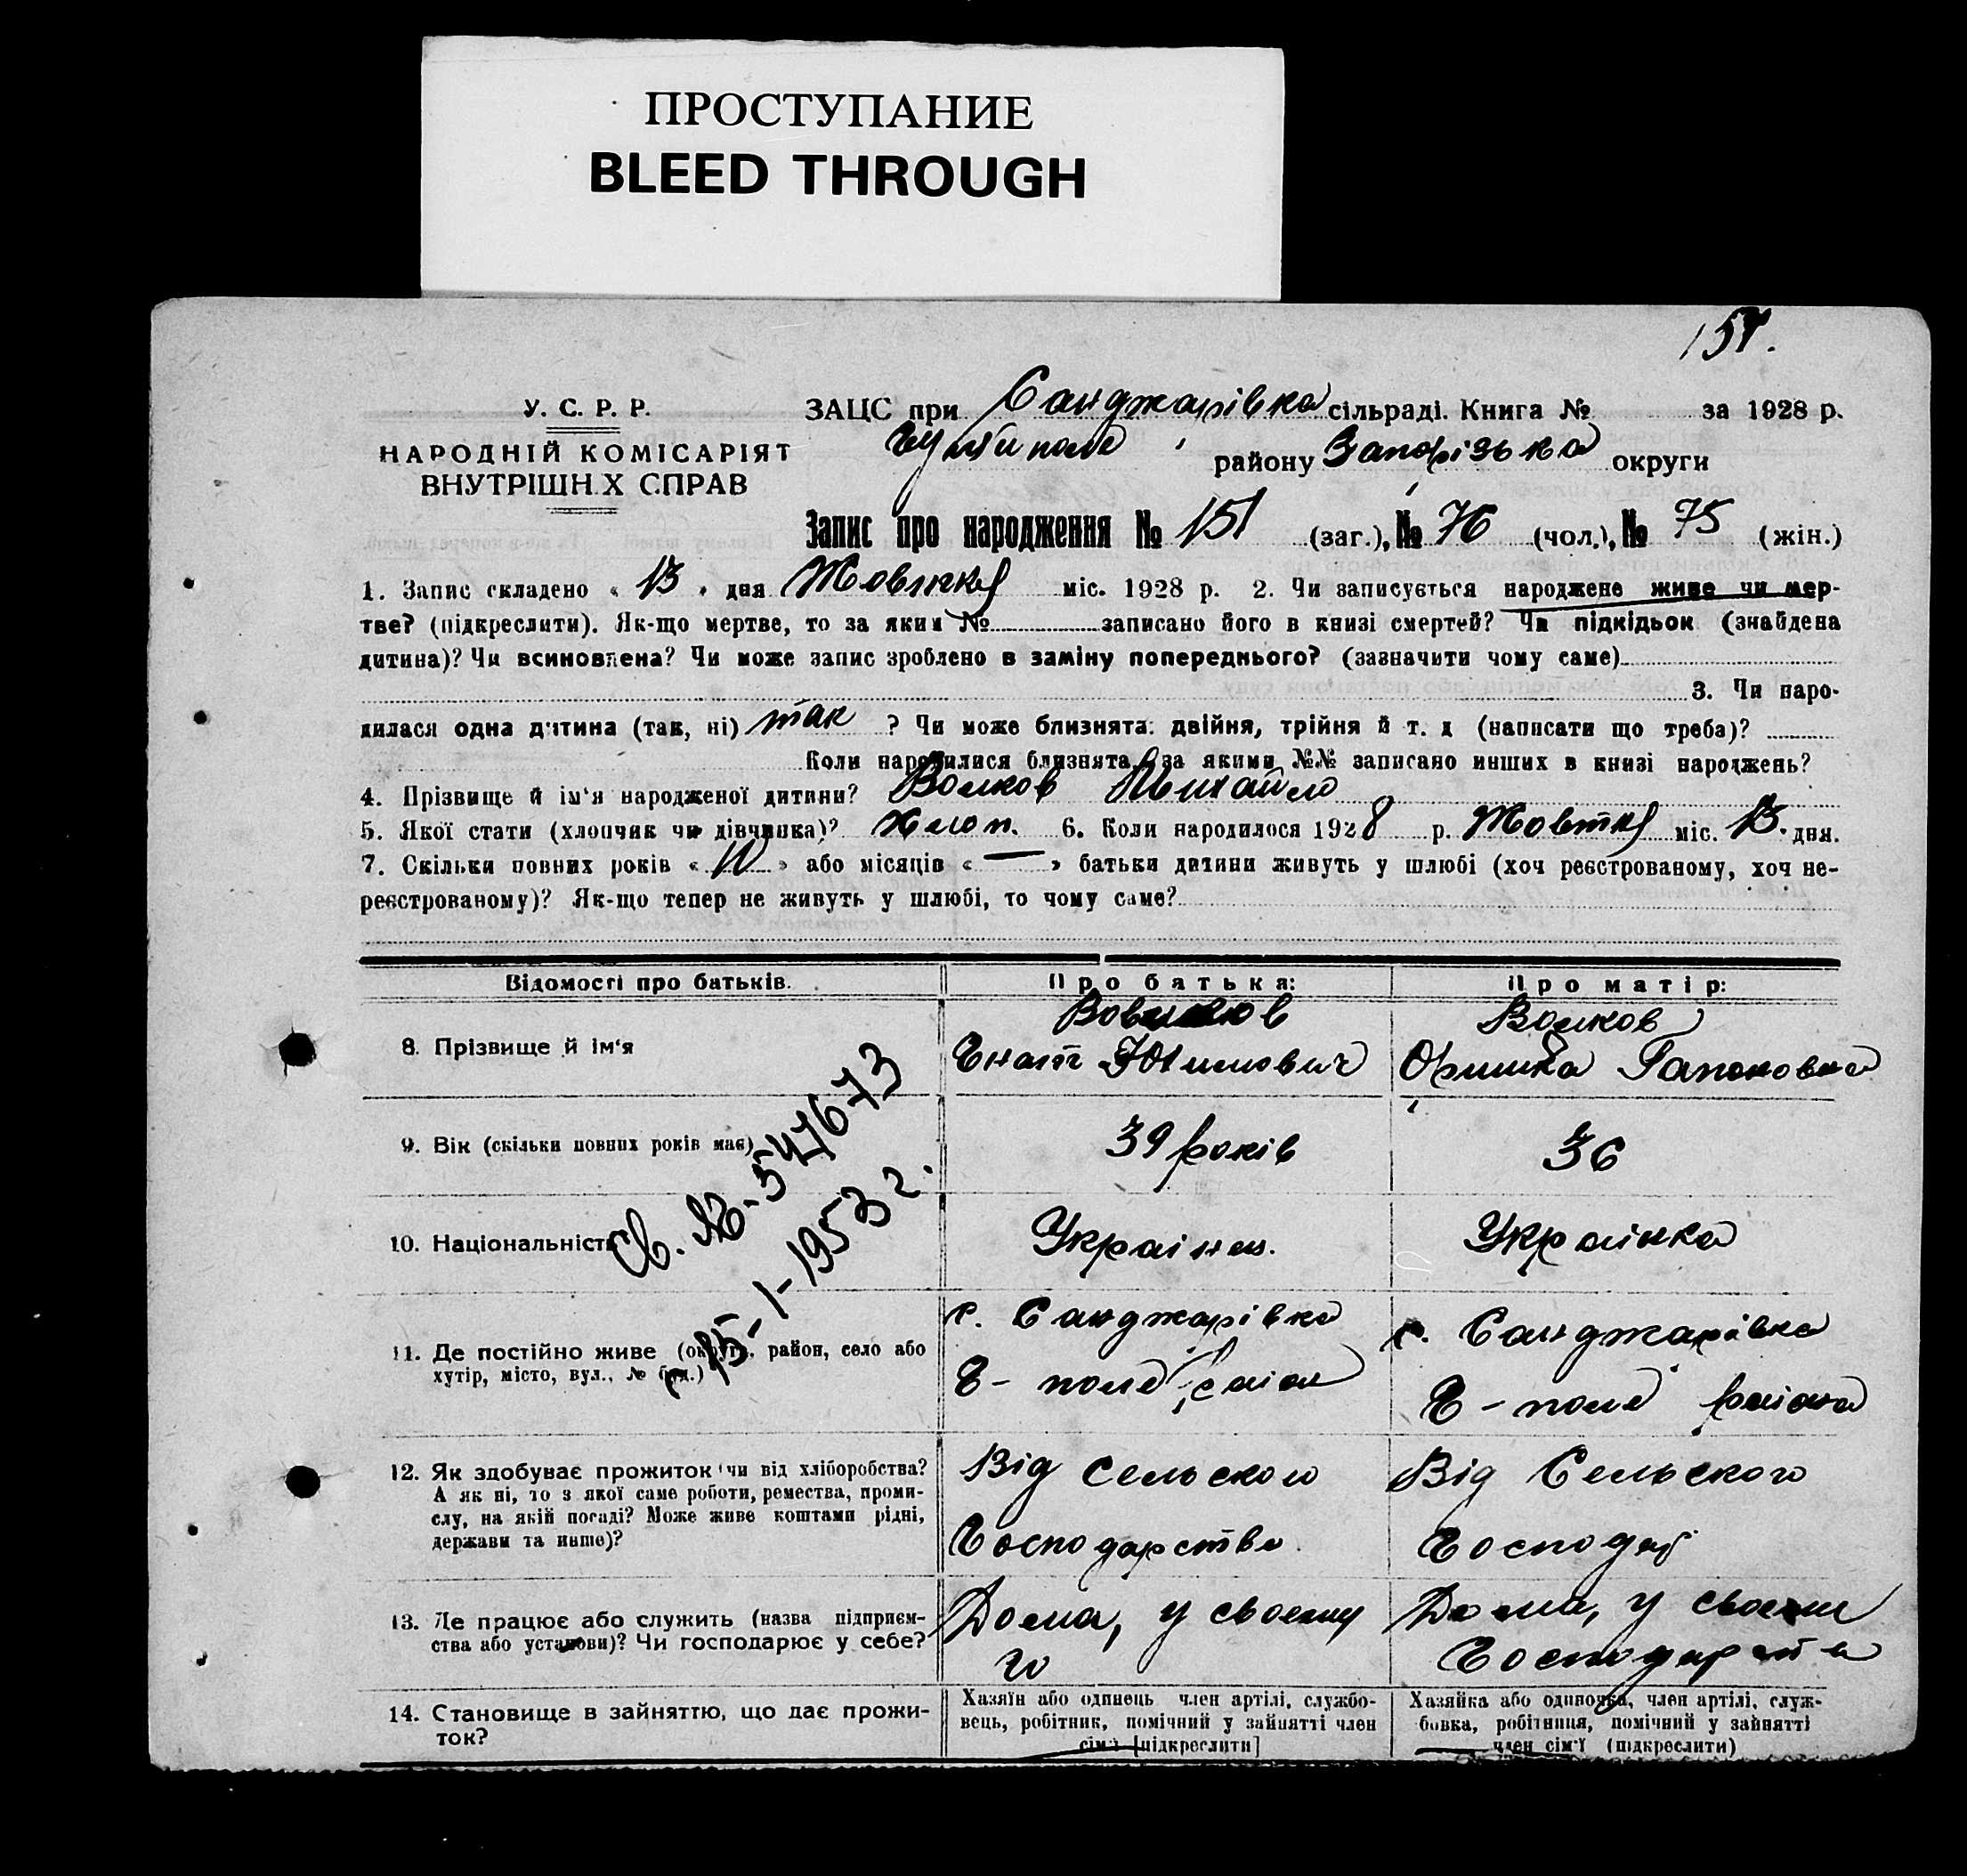 ПРОСТУПАНИЕ
BLEED THROUGH
151.
У. С. Р. Р.
НАРОДНІЙ КОМІСАРІЯТ
ВНУТРІШН.Х СПРАВ
ЗАЦС при Санджарівка сільраді. Книга № за 1928 р.
району Запорізька округи
Запис про народження № 151 (заг.), № 76 (чол.), № 75 (жін.)
1. Запис складено « 13 » дня Жовтня міс. 1928 р. 2. Чи записується народжене живе чи мер-
тве? (підкреслити). Як-що мертве, то за яким № записано його в книзі смертей? Чи підкідьок (знайдена
дитина)? Чи всиновлена? Чи може запис зроблено в заміну попереднього? (зазначити чому саме)
3. Чи наро-
дилася одна дитина (так, ні) так ? Чи може близнята: двійня, трійня й т. д (написати що треба)?
Коли народилися близнята, за якими №№ записано инших в книзі народжень?
4. Прізвище й ім'я народженої дитини? Волков Михайло
5. Якої стати (хлопчик чи дівчинка)? Хлоп. 6. Коли народилося 1928 р. Жовтня міс. 13. дня.
7. Скільки повних років « » або місяців « — » батьки дитини живуть у шлюбі (хоч реєстрованому, хоч не-
реєстрованому)? Як-що тепер не живуть у шлюбі, то чому саме?
Відомості про батьків. Про батька: Про матір:
8. Прізвище й ім'я
Гнат Юхимович
Волков
Оришка Гапоновна
9. Вік (скільки повних років має) 39 років 36
10. Національність Украінец. Украінка
11. Де постійно живе (округа, район, село або
хутір, місто, вул., № буд.)
с. Санджарівка
Г- поле район
с. Санджарівка
Г- поле района
12. Як здобуває прожиток (чи від хліборобства?
А як ні, то з якої саме роботи, ремества, проми-
слу, на якій посаді? Може живе коштами рідні,
держави та инше)?
Від Сельского
Господарства.
Від Сельского
Господар
13. Де працює або служить (назва підприєм-
ства або установи)? Чи господарює у себе?
Дома, у своему
го
Дома, у своєми
Господарства
14. Становище в зайняттю, що дає прожи-
ток?
Хазяїн або одинець член артілі, службо-
вець, робітник, помічний у зайнятті член
сім'ї [підкреслити]
Хазяйка або одиночка, член артілі, служ-
бовка, робітниця, помічний у зайнятті
член сім'ї (підкреслити)
547673
15-1-1953 г.